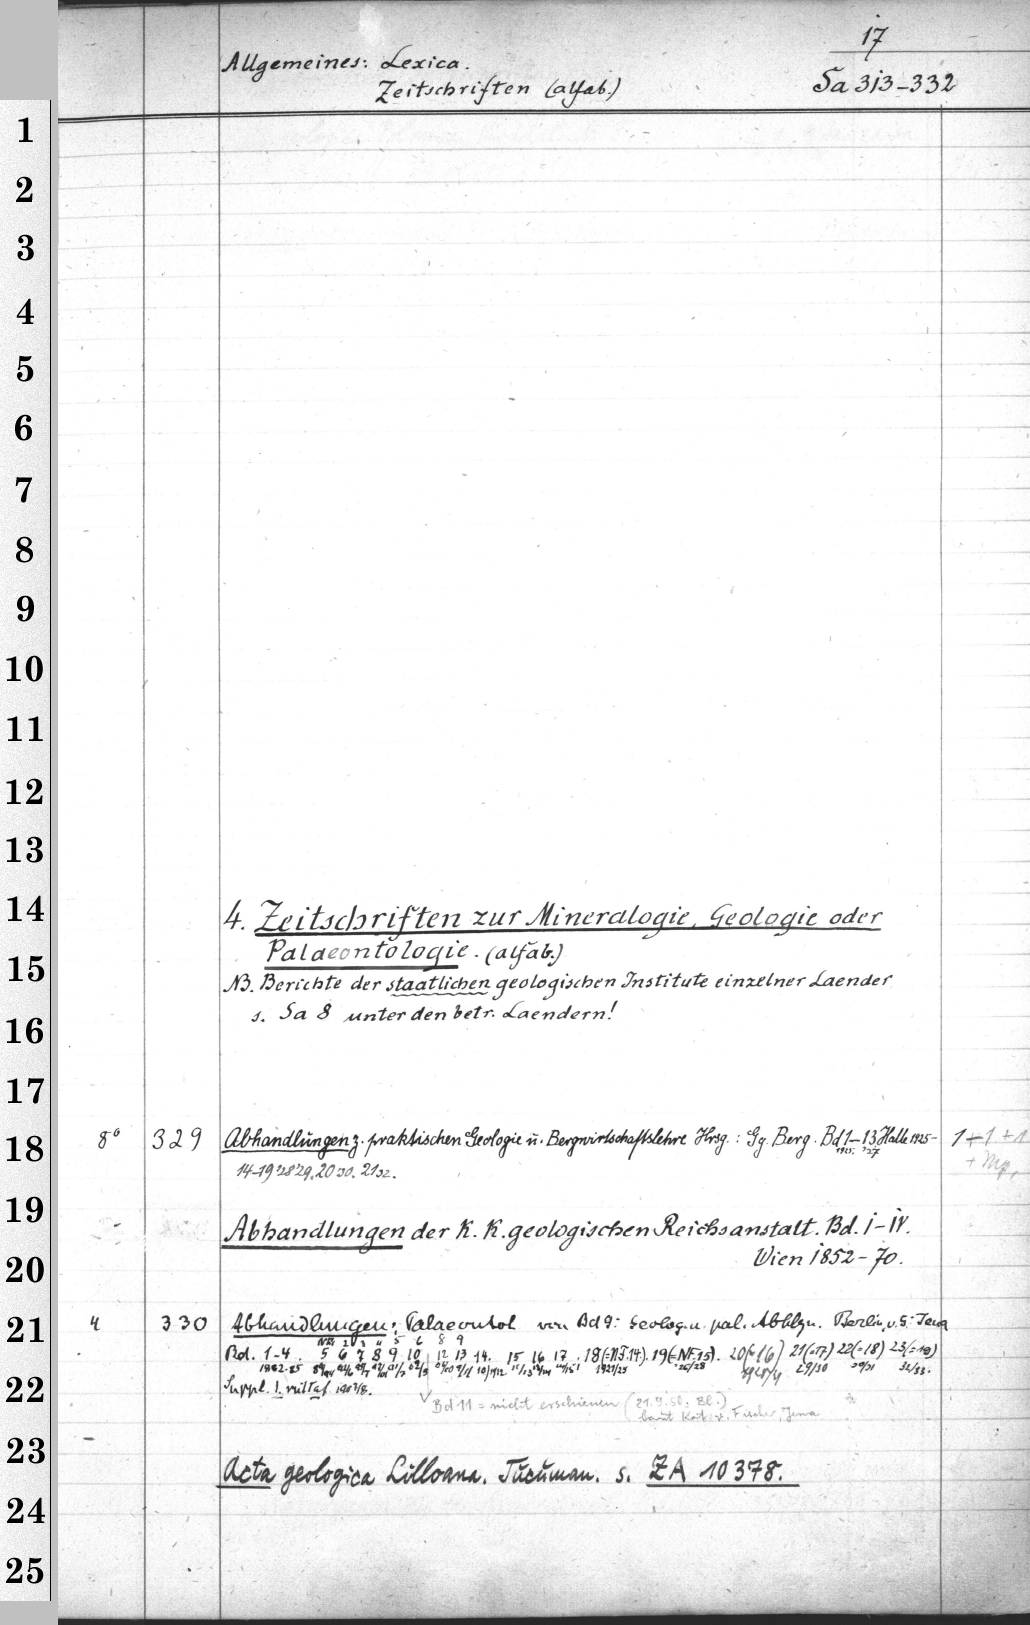 17
Allgemeines: Lexica.
Zeitschriften (alfab.)
Sa 313-332
1
2
3
4
5
6
7
8
9
10
11
12
13
14
4. Zeitschriften zur Mineralogie, Geologie oder
15
Palaeontologie. (alfab.)
NB. Berichte der staatlichen geologischen Institute einzelner Laender
16
s. Sa 8 unter den betr. Laendern!
17
18
8° 329 Abhandlungen z. praktischen Geologie u. Bergwirtschaftslehre Hrsg.: Gg. Berg. Bd 1-13 Halle 1925- 1+1+1
14-19 28 29. 20 30. 21 32.
19
Abhandlungen der K. K. geologischen Reichsanstalt. Bd. I-IV.
20
Wien 1852-70.
21
4 330 Abhandlungen, Palaeontol von Bd 9: Geolog. u. pal. Abhlgn. Berlin, v. 5: Jena
NF.1 2 3 4 5 6 8 9
Bd. 1-4. 5 6 7 8 9 10 12 13 14. 15 16 17. 18(=N.F.14). 19(=NF.15). 20(=16) 21(=17) 22(=18) 23(=19)
1882-85
22
Suppl. 1. mit Taf. 1907/8.
Bd 11 = nicht erschienen (21.9.50. Bl.)
laut Kat. v. Fischer, Jena
23
Acta geologica Lilloana. Tucuman. s. ZA 10378.
24
25